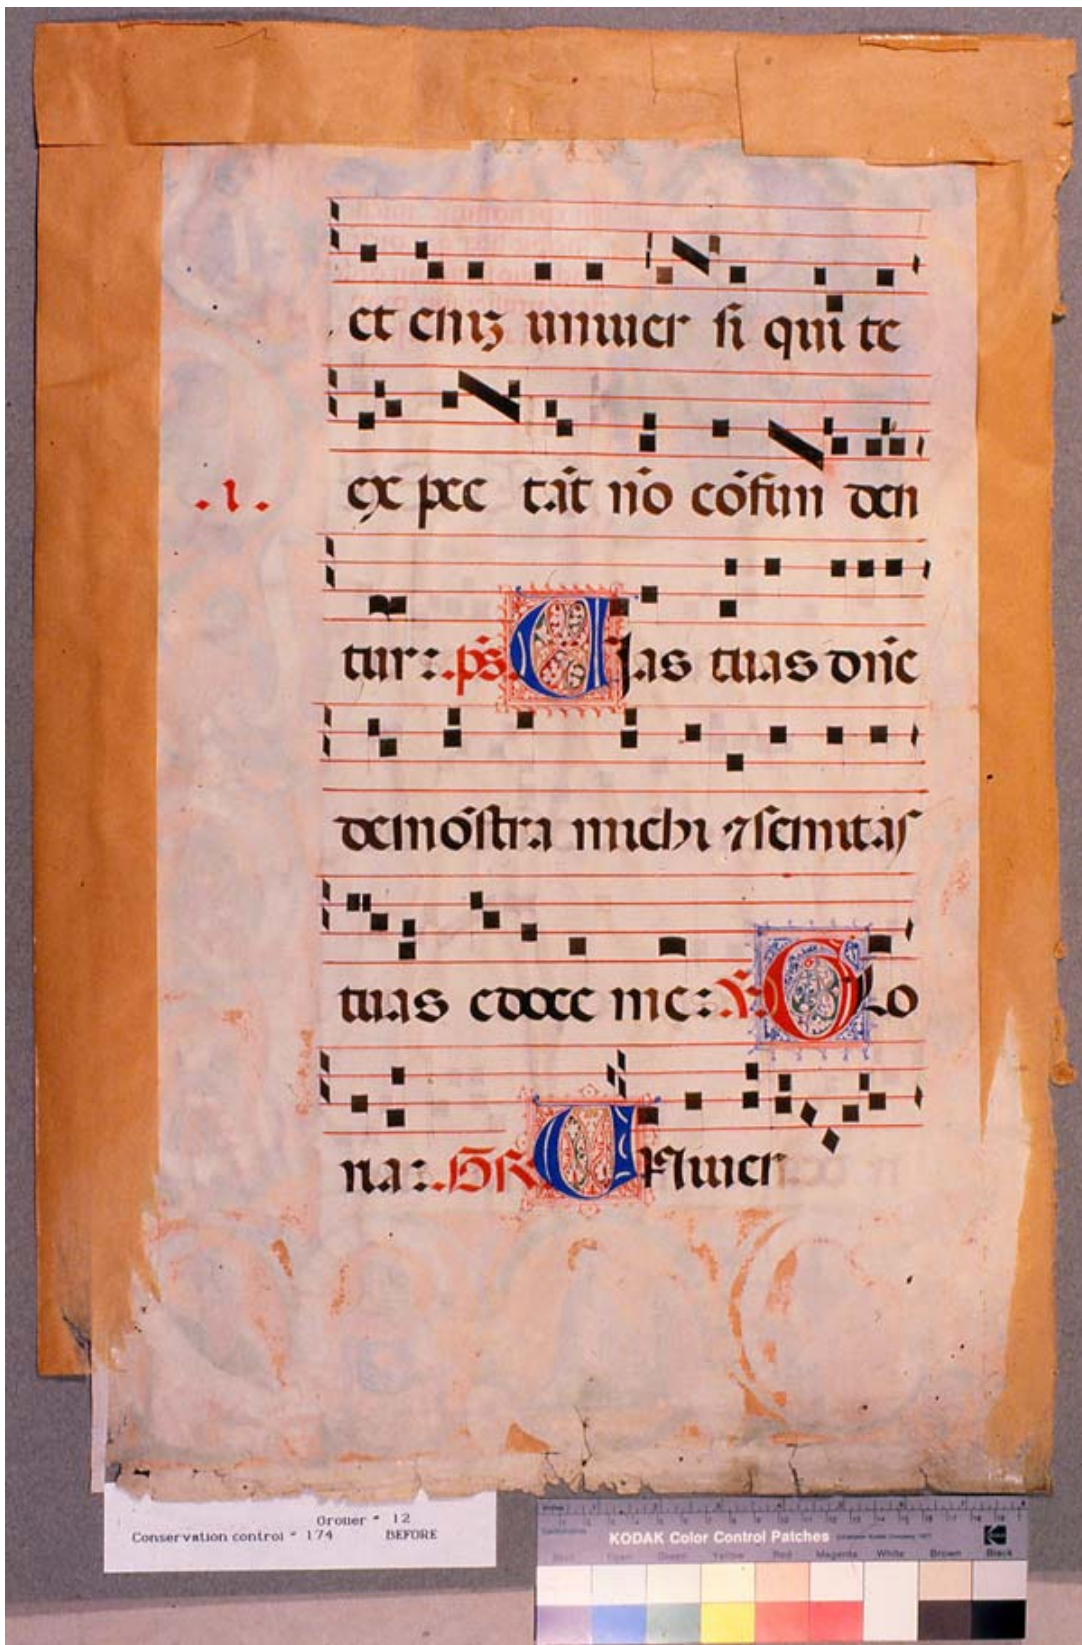 et eniȝ uniuer si qui te
ex pec tāt nō cōfun den
.1.
tur: .ps̄. Uias tuas dn̄e
demōstra michi ⁊ semitas
tuas edoce me: V̄. Glo
ria: .G̅R̅ Uniuer
Groller # 12
Conservation control # 174 BEFORE
KODAK Color Control Patches
Blue Cyan Green Yellow Red Magenta White Brown Black